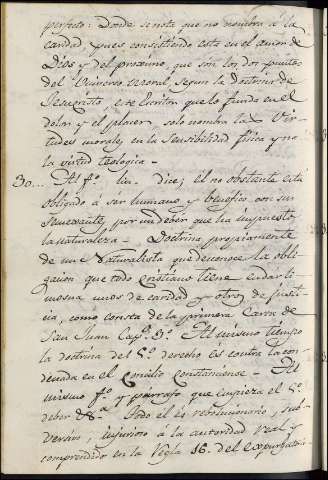 perfecto: Donde se nota que no nombra á la
caridad, pues consistiendo esta en el amor de
Dios y del proximo, que son los dos puntos
del Universo moral, segun la Doctrina de
Jesucristo, este Escritor que lo funda en el
dolor y el placer solo nombra las Vir-
tudes morales, en la Sensibilidad fisica y no
la virtud teologica -
30... Al fº dice; el no obstante está
obligado á ser humano, y benefico con sus
semejantes, por un deber que ha impuesto
la naturaleza - Doctrina propiamente
de un Naturalista que desconoce la obli-
gacion que todo Cristiano tiene en dar li-
mosna unos de caridad y otros de justi-
cia, como consta de la primera Carta de
San Juan Capº 3º Al mismo tiempo
la doctrina del 5º derecho es contra la con-
denada en el Concilio Constanciense - Al
mismo fº y parrafo que empieza el 5º
deber &ª Todo el es revolucionario, sub-
versivo, injurioso á la autoridad Real y
comprendido en la Regla 16. del expurgato-